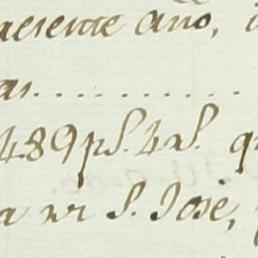 presente año,
as...........
489 ps. 4 rs. q
a nr S. Jose,